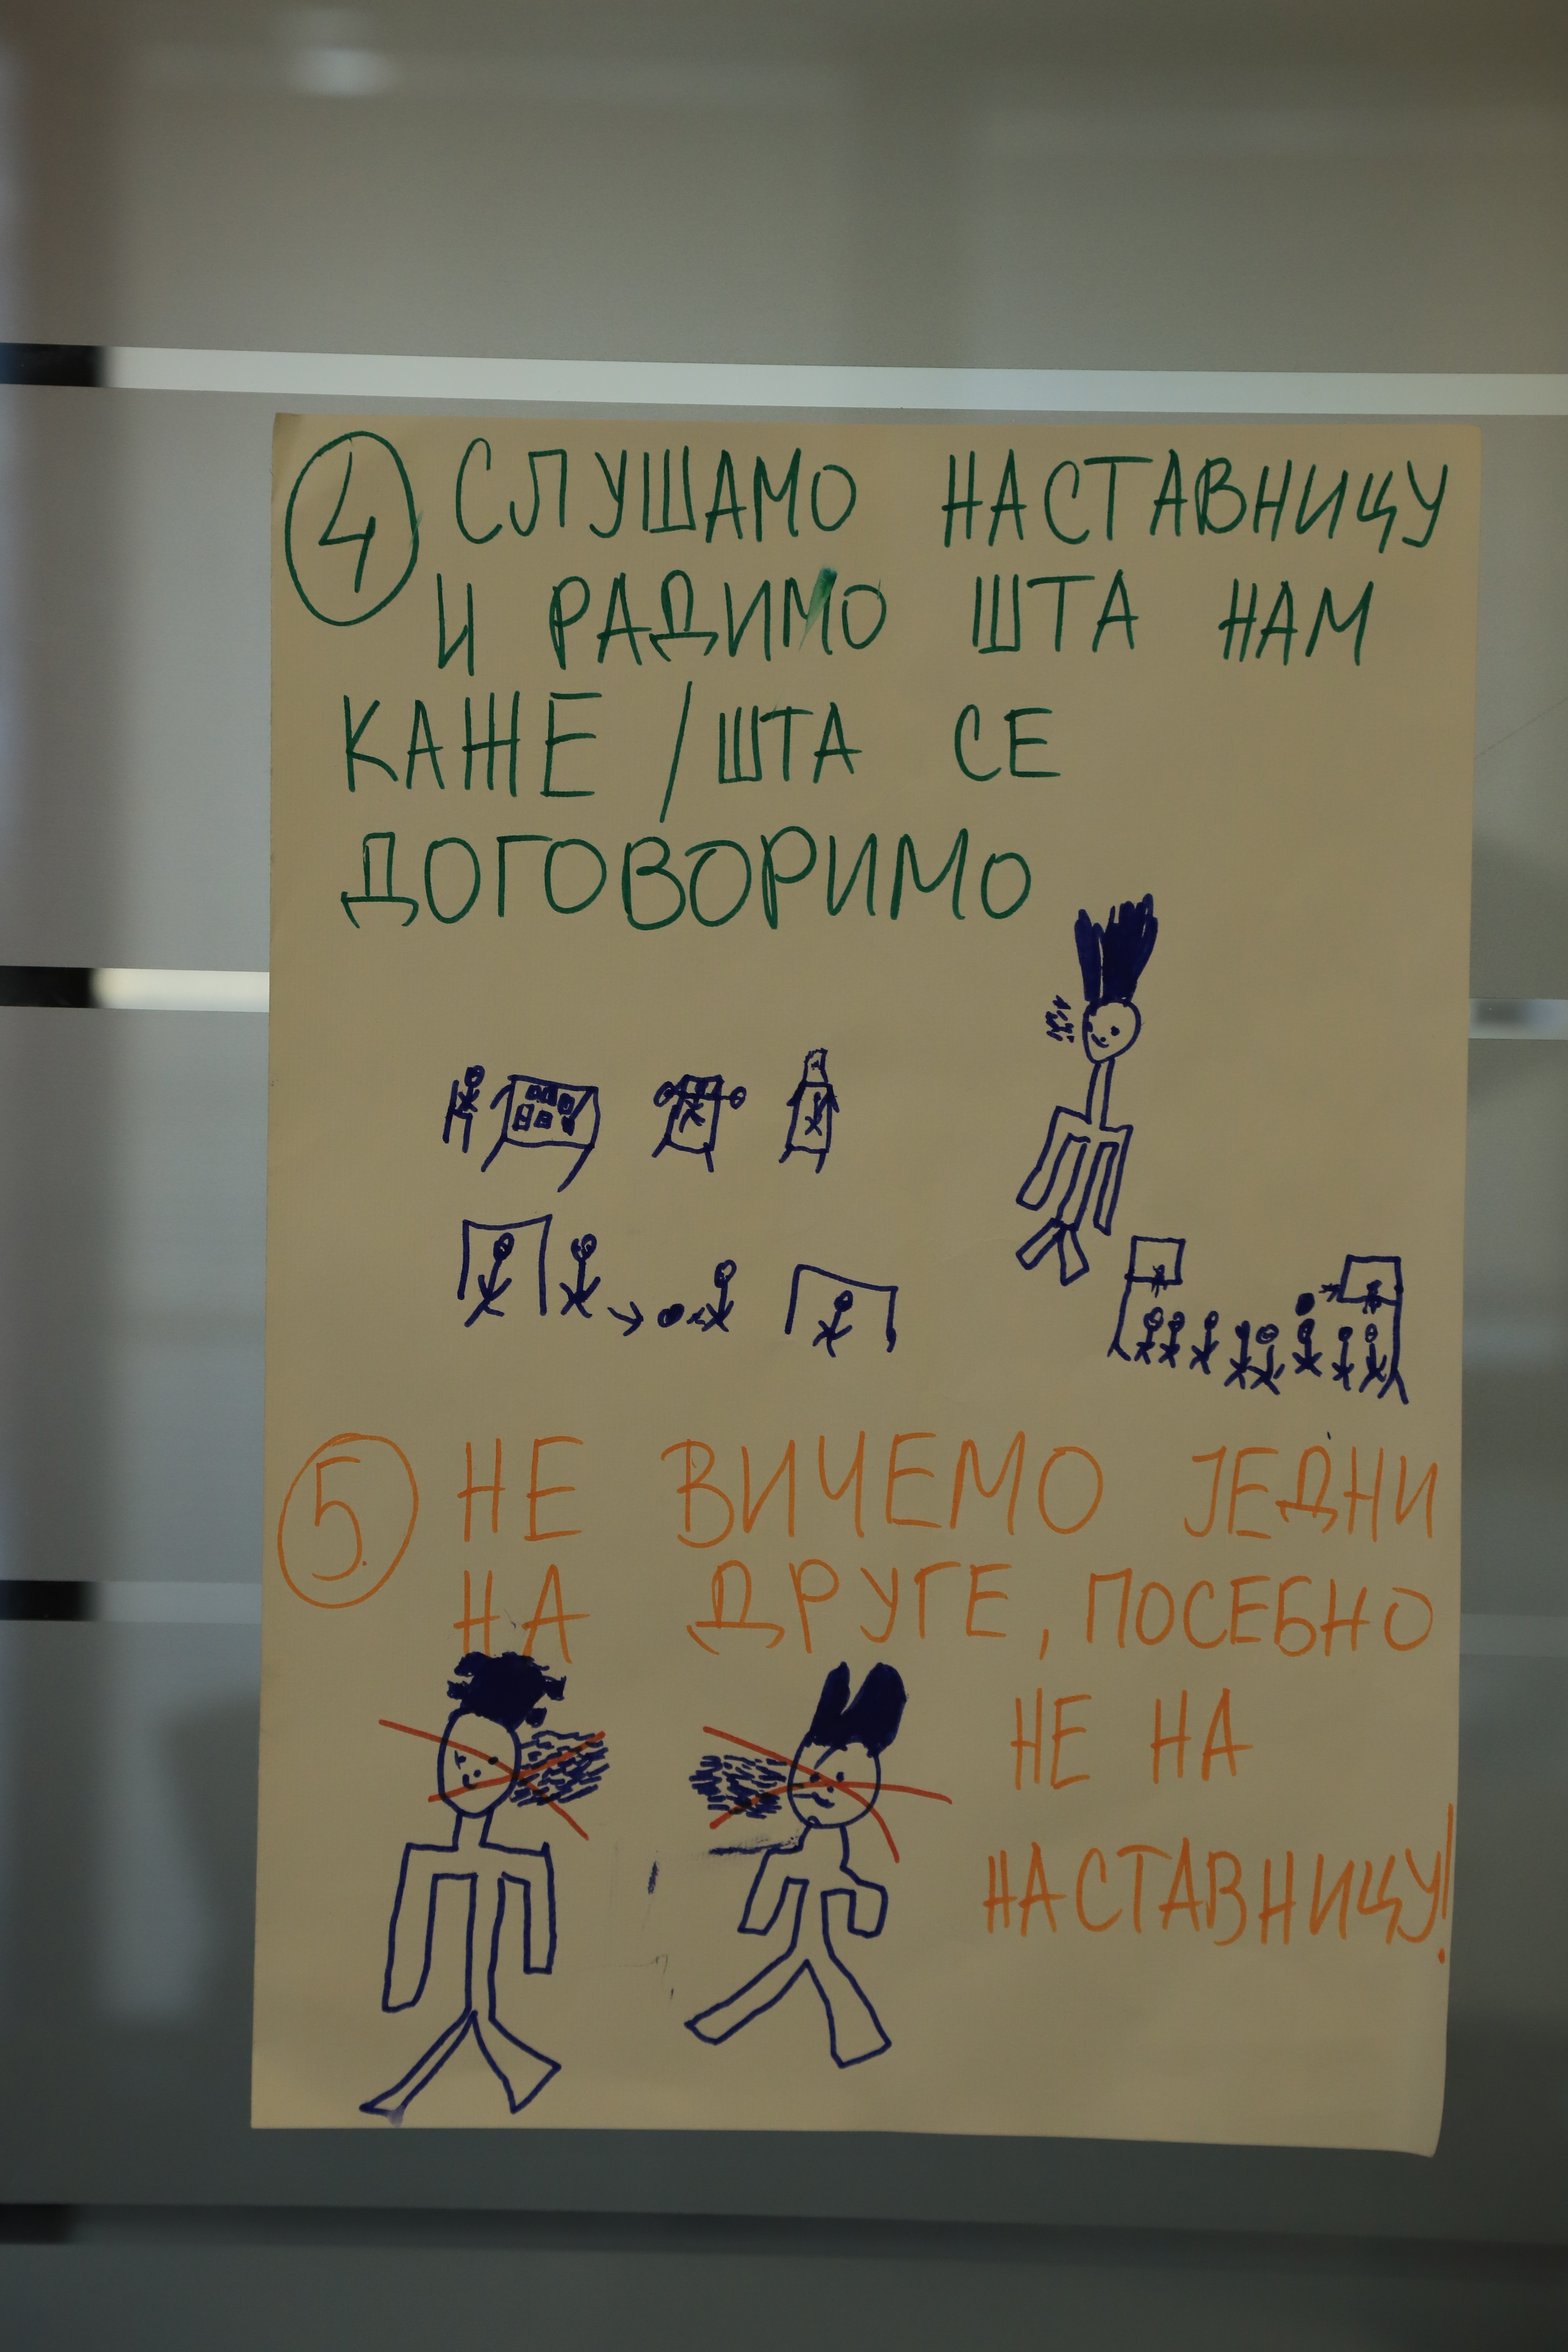 4 СЛУШАМО НАСТАВНИЦУ
И РАДИМО ШТА НАМ
КАЖЕ / ШТА СЕ
ДОГОВОРИМО
5. НЕ ВИЧЕМО ЈЕДНИ
НА ДРУГЕ, ПОСЕБНО
НЕ НА
НАСТАВНИЦУ!